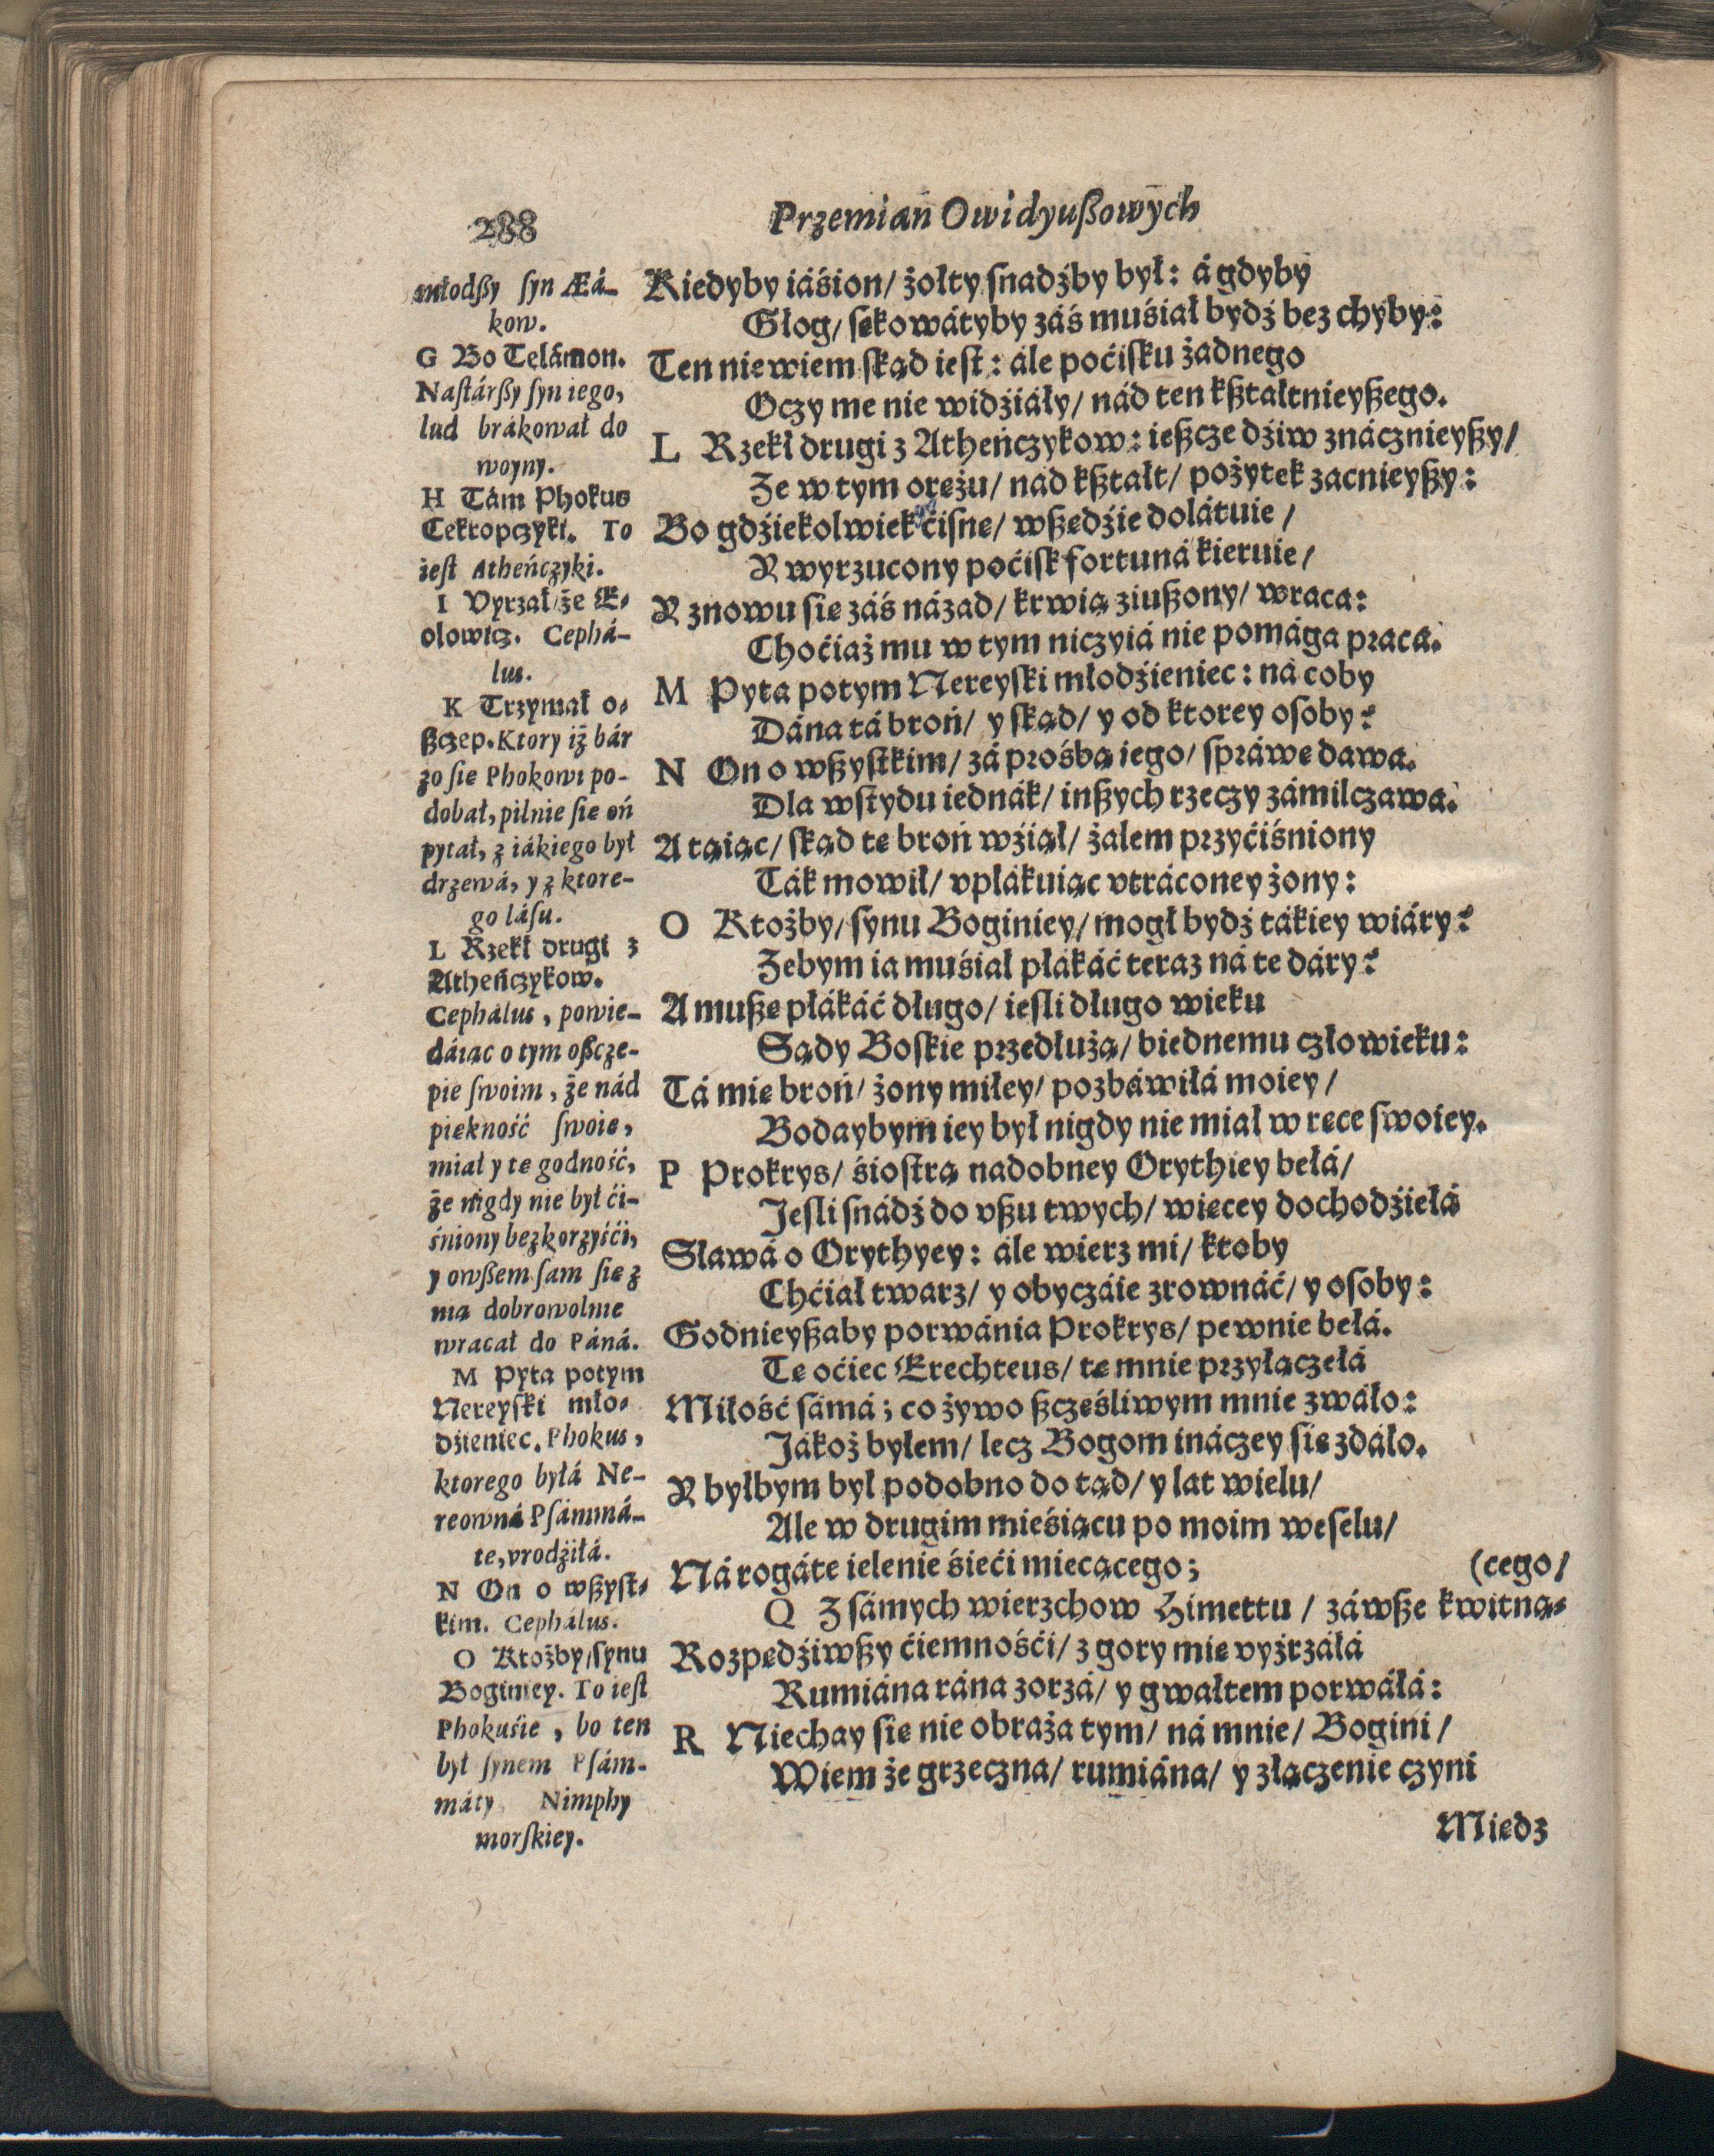 288
Przemian Owidyuszowych
młodszy syn Æá-
kow.
G Bo Telámon.
Nastárszy syn iego,
lud brákował do
woyny.
H Tám Phokus
Cekropczyki. To
iest Atheńczyki.
I Vyrzał/że E-
olowicz. Cephá-
lus.
K Trzymał o-
szczep. Ktory iż bár
zo sie Phokowi po-
dobał, pilnie sie oń
pytał, z iákiego był
drzewá, y z ktore-
go lásu.
L Rzekł drugi z
Atheńczykow.
Cephálus, powie-
dáiąc o tym oszcze-
pie swoim, że nád
piękność swoię,
miał y tę godność,
że nigdy nie był ći-
śniony bez korzyśći,
y owszem sam się z
nią dobrowolnie
wracał do Páná.
M Pyta potym
Nereyski mło-
dźieniec. Phokus,
ktorego byłá Ne-
reowná Psámmá-
te, vrodźiłá.
N On o wszyst-
kim. Cephálus.
O Ktożby/synu
Boginiey. To iest
Phokuśie, bo ten
był synem Psám-
máty Nimphy
morskiey.
Kiedyby iáśion/ żołty snadźby był: á gdyby
Głog/ sękowátyby záś muśiał bydź bez chyby:
Ten nie wiem skąd iest: ále poćisku żadnego
Oczy me nie widźiáły/ nád ten kształtnieyszego.
L Rzekł drugi z Atheńczykow: ieszcze dźiw znácznieyszy/
Że w tym orężu/ nád kształt/ pożytek zacnieyszy:
Bo gdźiekolwiek ćisnę/ wszędźie dolátuie/
Y wyrzucony poćisk fortuná kieruie/
Y znowu się záś názad/ krwią ziuszony/ wraca:
Choćiaż mu w tym niczyiá nie pomága praca.
M Pyta potym Nereyski młodźieniec: ná coby
Dána tá broń/ y skąd/ y od ktorey osoby?
N On o wszystkim/ zá prośbą iego/ spráwę dawa.
Dla wstydu iednák/ inszych rzeczy zámilczawa.
A táiąc/ skąd tę broń wźiął/ żalem przyćiśniony
Ták mowił/ vpłákuiąc vtráconey żony:
O Ktożby/ synu Boginiey/ mogł bydź tákiey wiáry?
Żebym ia muśiał płákáć teraz ná te dáry?
A muszę płákáć długo/ iesli długo wieku
Sądy Boskie przedłużą/ biednemu człowieku:
Tá mię broń/ żony miłey/ pozbáwiłá moiey/
Bodaybym iey był nigdy nie miał w ręce swoiey.
P Prokrys/ śiostrą nadobney Orythiey bełá/
Jesli snádź do vszu twych/ więcey dochodźiełá
Sławá o Orythyey: ále wierz mi/ ktoby
Chćiał twarz/ y obyczáie zrownáć/ y osoby:
Godnieyszaby porwánia Prokrys/ pewnie bełá.
Tę oćiec Erechteus/ tę mnie przyłączełá
Miłość sámá; co żywo szczęśliwym mnie zwáło:
Jákoż byłem/ lecz Bogom ináczey się zdáło.
Y byłbym był podobno do tąd/ y lat wielu/
Ale w drugim mieśiącu po moim weselu/
Ná rogáte ielenie śieći miecącego; (cego/
Q Z sámych wierzchow Himettu/ záwsze kwitną-
Rozpędźiwszy ćiemnośći/ z gory mię vyźrzáłá
Rumiána rána zorzá/ y gwałtem porwáłá:
R Niechay się nie obraża tym/ ná mnie/ Bogini/
Wiem że grzeczna/ rumiána/ y złączenie czyni
Miedz